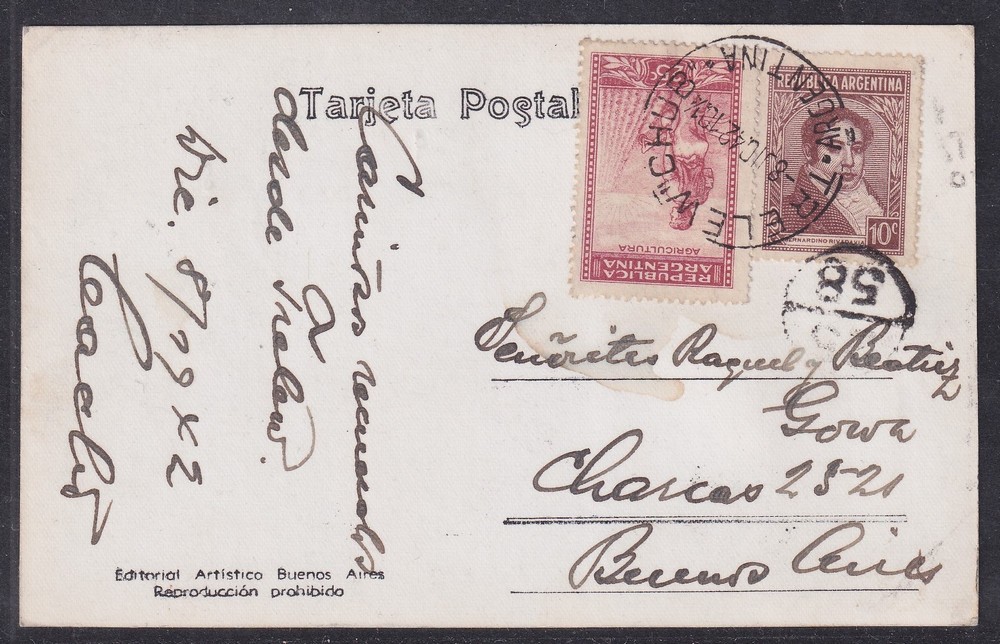 Tarjeta Postal
Cariños recuerdos
desde Trelew.
Dic. 8/942
25c
AGRICULTURA
REPUBLICA
ARGENTINA
REPUBLICA ARGENTINA
BERNARDINO RIVADAVIA
10c
TRELEW (CHUBUT)
ARGENTINA
58
Señoritas Raquel y Beatriz
Gowa
Charcas 2521
Buenos Aires
Editorial Artística Buenos Aires
Reproducción prohibida